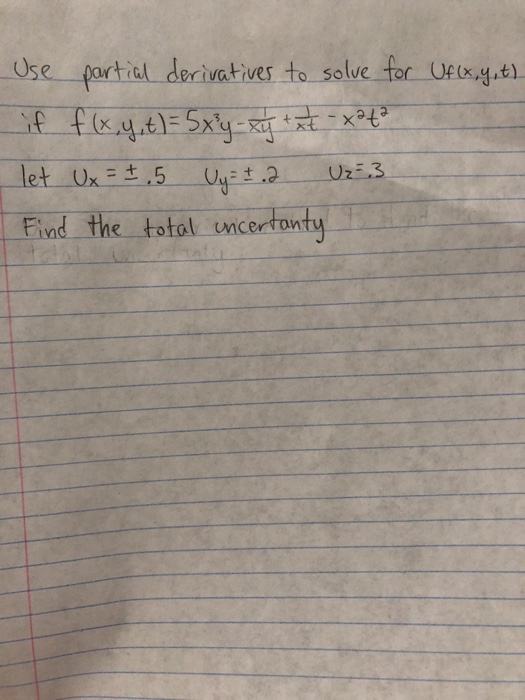 Use partial derivatives to solve for Uf(x,y,t)
if f(x,y,t)=5x³y-1/xy+1/xt-x²t²
let Ux=±.5 Uy=±.2 Uz=.3
Find the total uncertanty